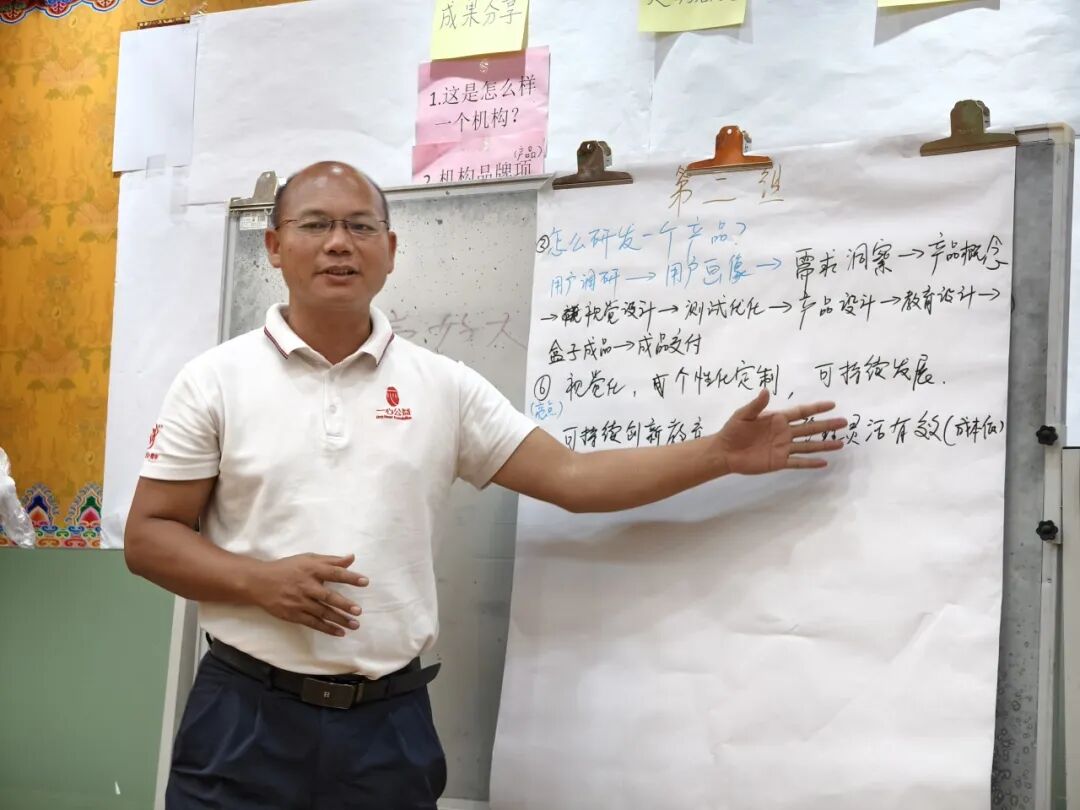 成果分享
1.这是怎么样
一个机构?
(产品)
2.机构品牌项
第二组
③怎么研发一个产品?
用户调研→用户画像→需求洞察→产品概念
→视觉设计→测试优化→产品设计→教育设计→
盒子成品→成品交付
⑥视觉化,个性化定制,可持续发展.
(亮点)
可持续创新 灵活有效(成本低)
一心公益